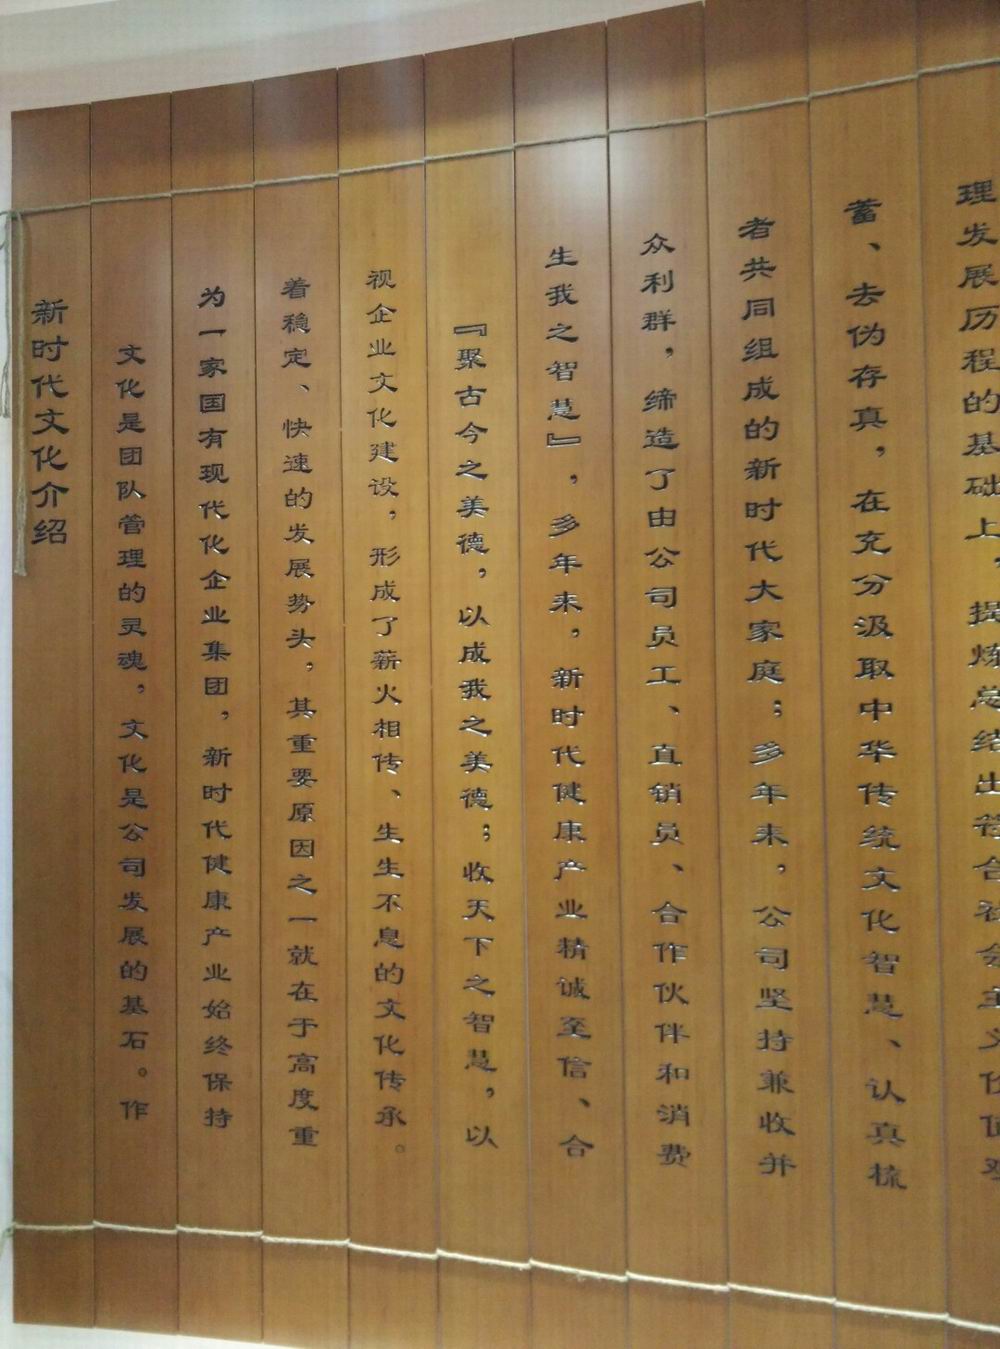 新时代文化介绍
文化是团队管理的灵魂，文化是公司发展的基石。作
为一家国有现代化企业集团，新时代健康产业始终保持
着稳定、快速的发展势头，其重要原因之一就在于高度重
视企业文化建设，形成了薪火相传、生生不息的文化传承。
『聚古今之美德，以成我之美德；收天下之智慧，以
生我之智慧』，多年来，新时代健康产业精诚至信、合
众利群，缔造了由公司员工、直销员、合作伙伴和消费
者共同组成的新时代大家庭；多年来，公司坚持兼收并
蓄、去伪存真，在充分汲取中华传统文化智慧、认真梳
理发展历程的基础上，提炼总结出符合社会主义价值